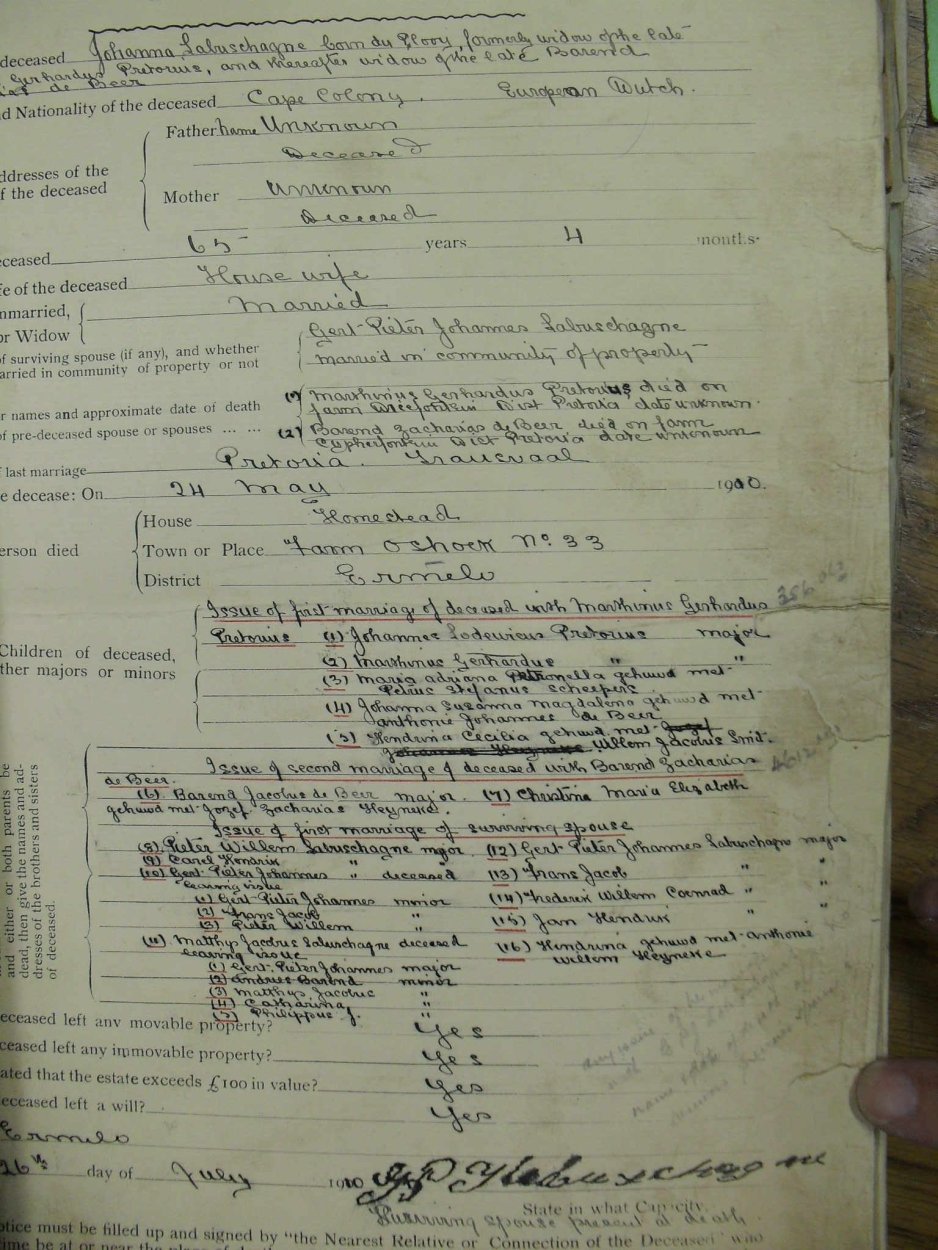 deceased Johanna Labuschagne born du Plooy, formerly widow of the late
Gerhardus Pretorius, and thereafter widow of the late Barend
de Beer
d Nationality of the deceased Cape Colony. European Dutch.
Father name Unknown
Deceased
ddresses of the
f the deceased
Mother Unknown
Deceased
eceased 65 years 4 months
fe of the deceased House wife
nmarried, Married
or Widow
of surviving spouse (if any), and whether Gert Pieter Johannes Labuschagne
arried in community of property or not married in community of property
r names and approximate date of death (1) Marthinus Gerhardus Pretorius died on
farm Dist Pretoria date unknown.
of pre-deceased spouse or spouses ... ... (2) Barend Zacharias de Beer died on farm
Cypherfontein Dist Pretoria date unknown
f last marriage Pretoria. Transvaal
e decease: On 24 May 1910.
House Homestead
erson died Town or Place Farm Oshoek No. 33
District Ermelo
Issue of first marriage of deceased with Marthinus Gerhardus
Pretorius (1) Johannes Lodewicus Pretorius major
Children of deceased,
ther majors or minors
(2) Marthinus Gerhardus " "
(3) Maria Adriana Petronella gehuwd met
Petrus Stefanus Scheepers
(4) Johanna Susanna Magdalena gehuwd met
Anthonie Johannes de Beer
(5) Hendrina Cecilia gehuwd met Jozef
Johannes Heyneke Willem Jacobus Smit.
Issue of second marriage of deceased with Barend Zacharias
de Beer.
(6) Barend Jacobus de Beer major. (7) Christina Maria Elizabeth
gehuwd met Jozef Zacharias Heyneke.
Issue of first marriage of surviving spouse
(8) Pieter Willem Labuschagne major (12) Gert Pieter Johannes Labuschagne major
(9) Carel Hendrik "
(10) Gert Pieter Johannes " deceased (13) Frans Jacob " "
leaving issue
(1) Gert Pieter Johannes minor (14) Frederik Willem Coenrad " "
(2) Frans Jacob "
(3) Pieter Willem " (15) Jan Hendrik " "
(11) Matthys Jacobus Labuschagne deceased (16) Hendrina gehuwd met Anthonie
leaving issue Willem Heyneke
(1) Gert Pieter Johannes major
(2) Andries Barend minor
(3) Matthys Jacobus "
(4) Catharina "
(5) Philippus J. "
and either or both parents be
dead, then give the names and ad-
dresses of the brothers and sisters
of deceased.
eceased left any movable property? Yes
ceased left any immovable property? Yes
ated that the estate exceeds £100 in value? Yes
eceased left a will? Yes
Ermelo
26th day of July 1910 Labuschagne
State in what Capacity.
Surviving spouse present at death.
otice must be filled up and signed by "the Nearest Relative or Connection of the Deceased" who
time be at or near the place of